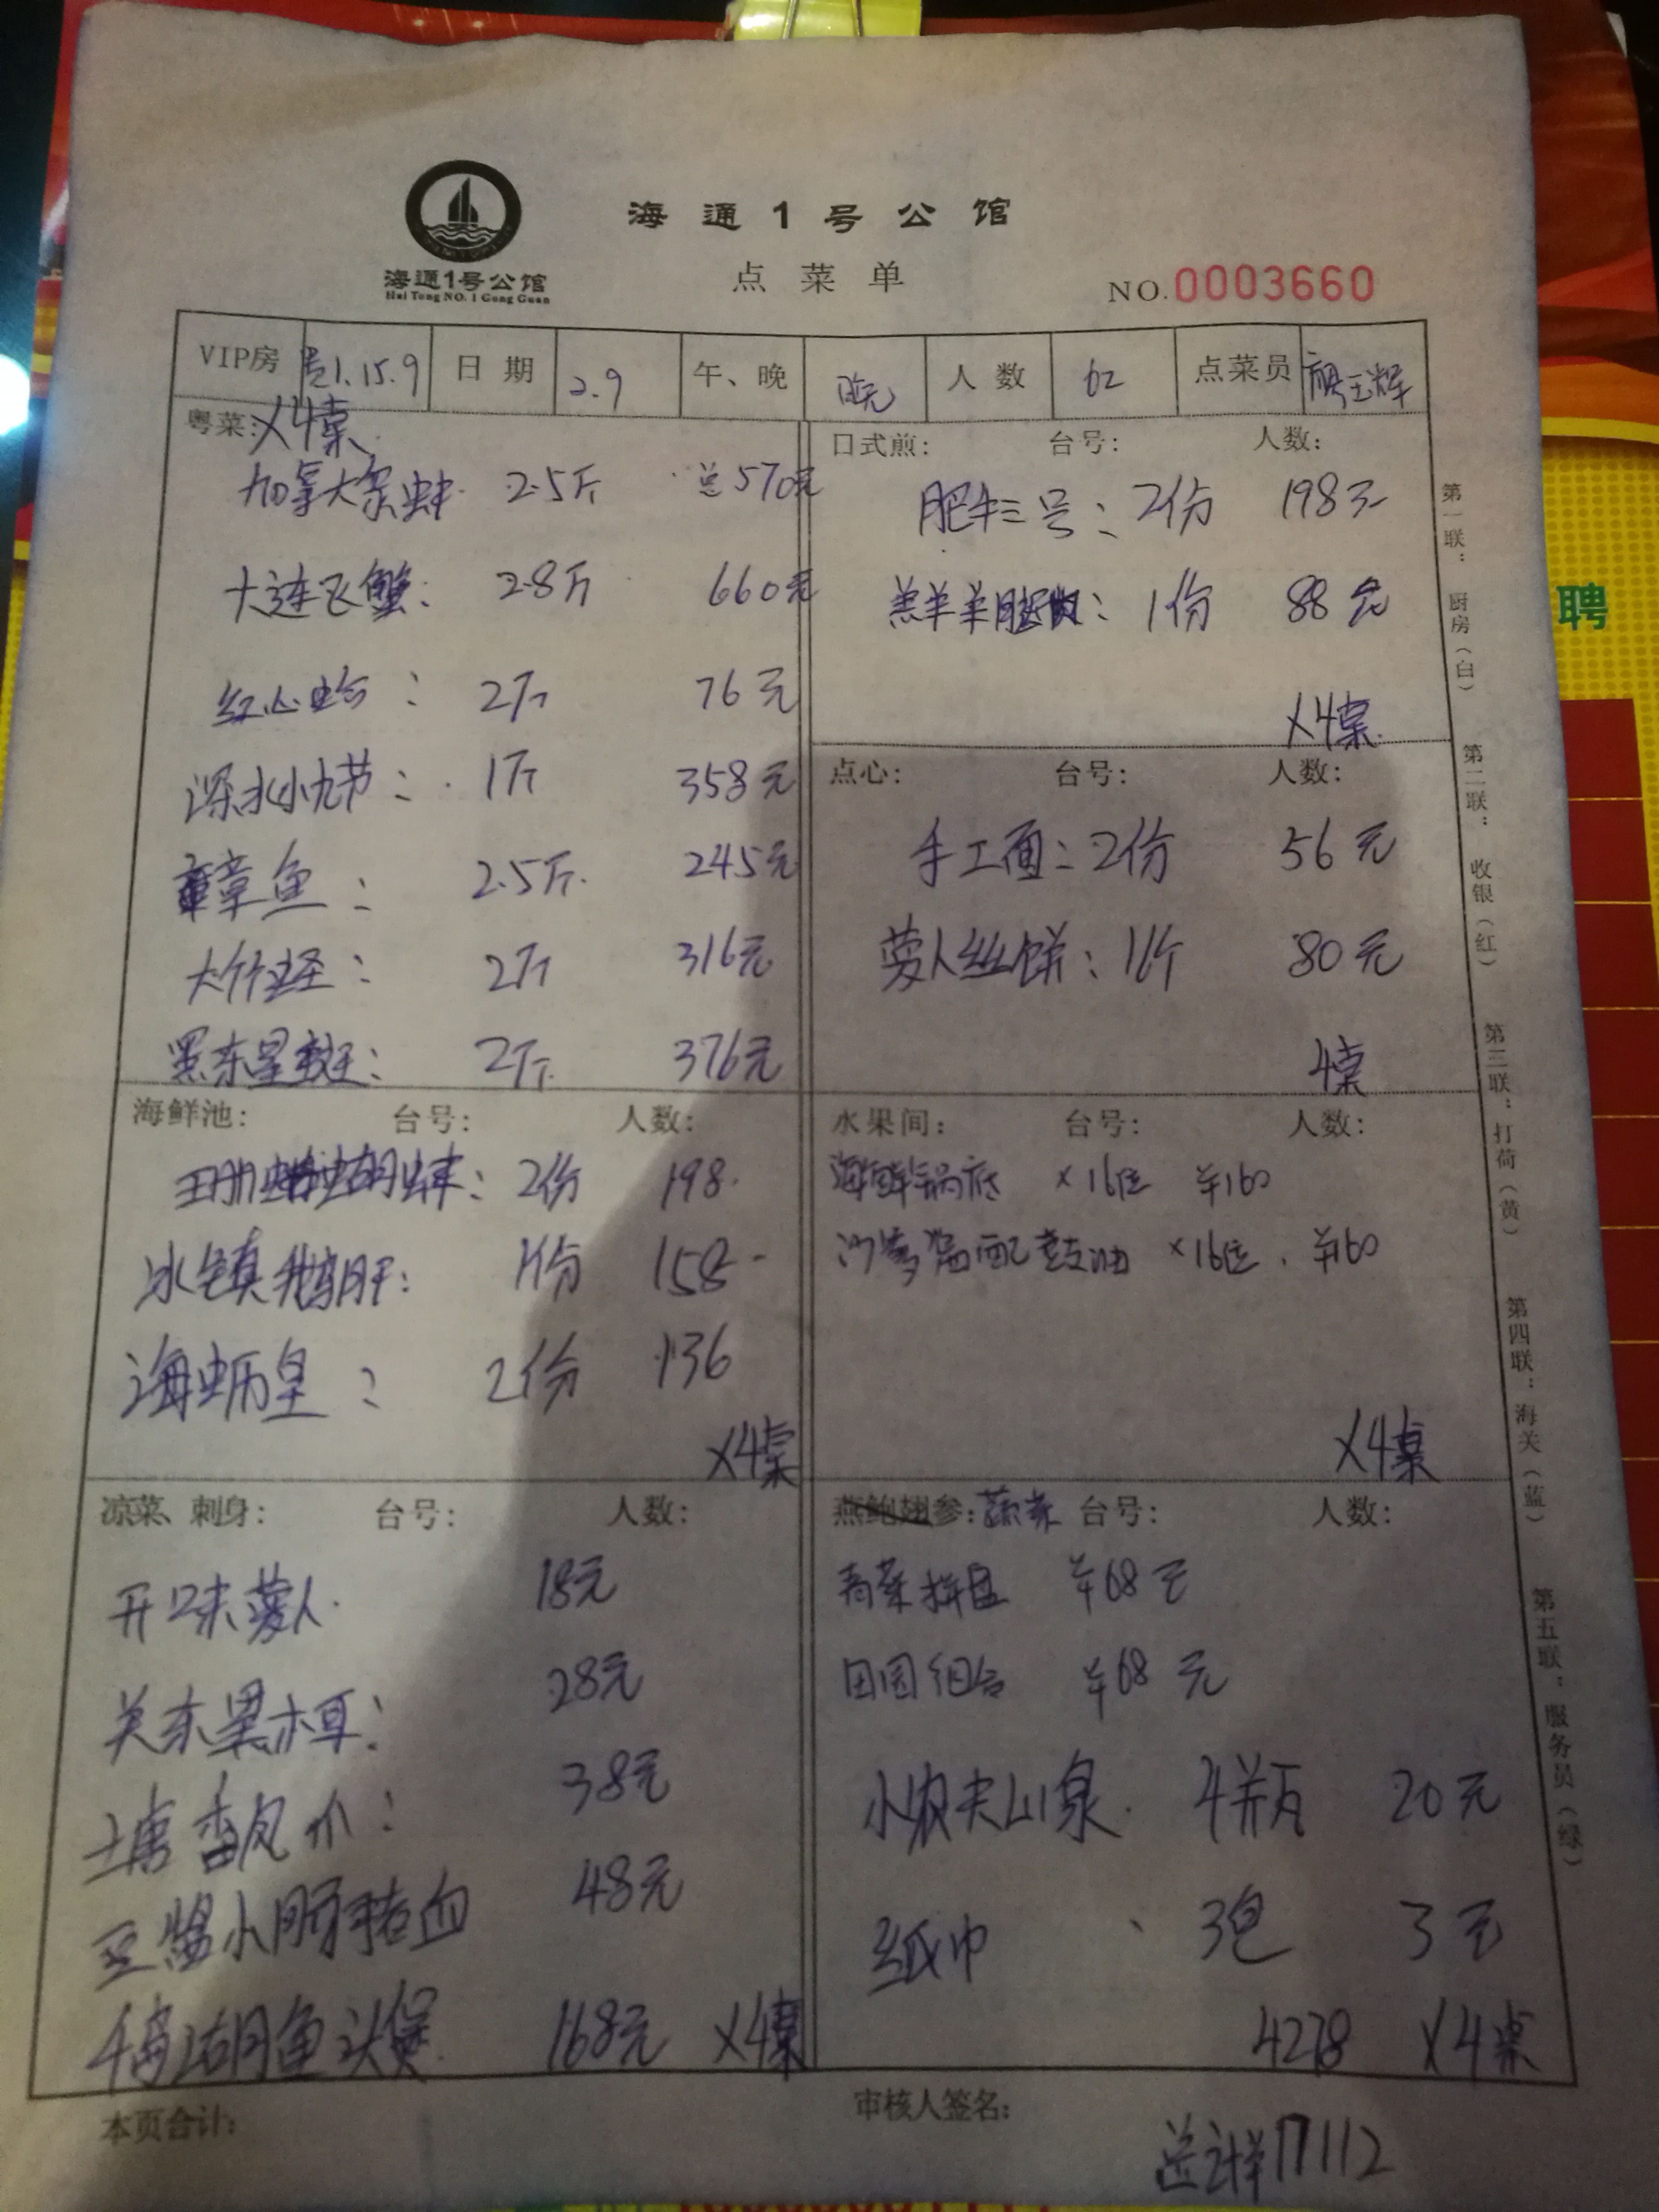 海通1号公馆
海通1号公馆
Hai Tong NO.1 Gong Guan
点菜单
NO.0003660
VIP房 1.15.9 日期 2.9 午、晚 晚 人数 62 点菜员
粤菜: X4桌
加拿大象蚌 2.5斤 总570元
大连飞蟹: 2.8斤 660元
红心蛤: 2斤 76元
深水小九节: 1斤 358元
章鱼: 2.5斤 245元
大竹蛏: 2斤 316元
黑东星斑: 2斤 376元
口式煎: 台号: 人数:
肥牛三号: 2份 198元
羔羊羊腿肉: 1份 88元
X4桌
点心: 台号: 人数:
手工面: 2份 56元
萝卜丝饼: 1斤 80元
4桌
海鲜池: 台号: 人数:
2份 198
冰镇鹅肝: 1份 158
海蛎皇: 2份 136
X4桌
水果间: 台号: 人数:
海鲜锅底 ×16位 ¥160
×16位 ¥160
X4桌
凉菜、刺身: 台号: 人数:
开味萝卜 18元
关东黑木耳: 28元
38元
小肠猪血 48元
千岛湖鱼头煲 168元 X4桌
燕鲍翅参: 蔬菜 台号: 人数:
青菜拼盘 ¥68元
田园组合 ¥68元
小农夫山泉 4瓶 20元
纸巾 3包 3元
4278 X4桌
本页合计:
审核人签名:
总计¥17112
第一联:厨房(白)
第二联:收银(红)
第三联:打荷(黄)
第四联:海关(蓝)
第五联:服务员(绿)
聘